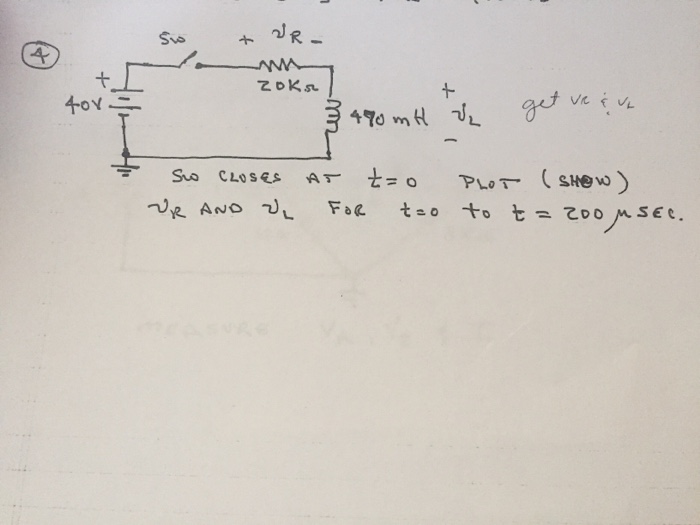 4
SW + VR -
+ 20KΩ
40V 470 mH + VL - get VR & VL
SW CLOSES AT t=0 PLOT (SHOW)
VR AND VL FOR t=0 to t = 200 μSEC.
MEASURE